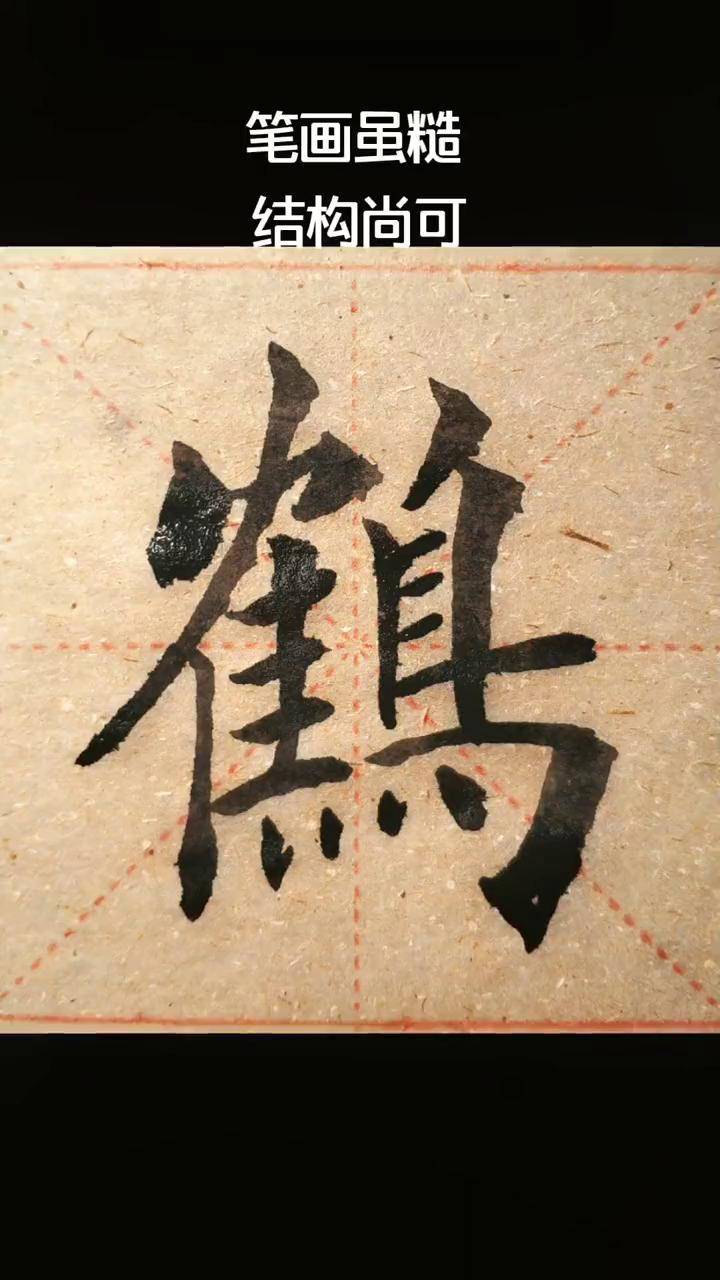 笔画虽糙
结构尚可
鶴